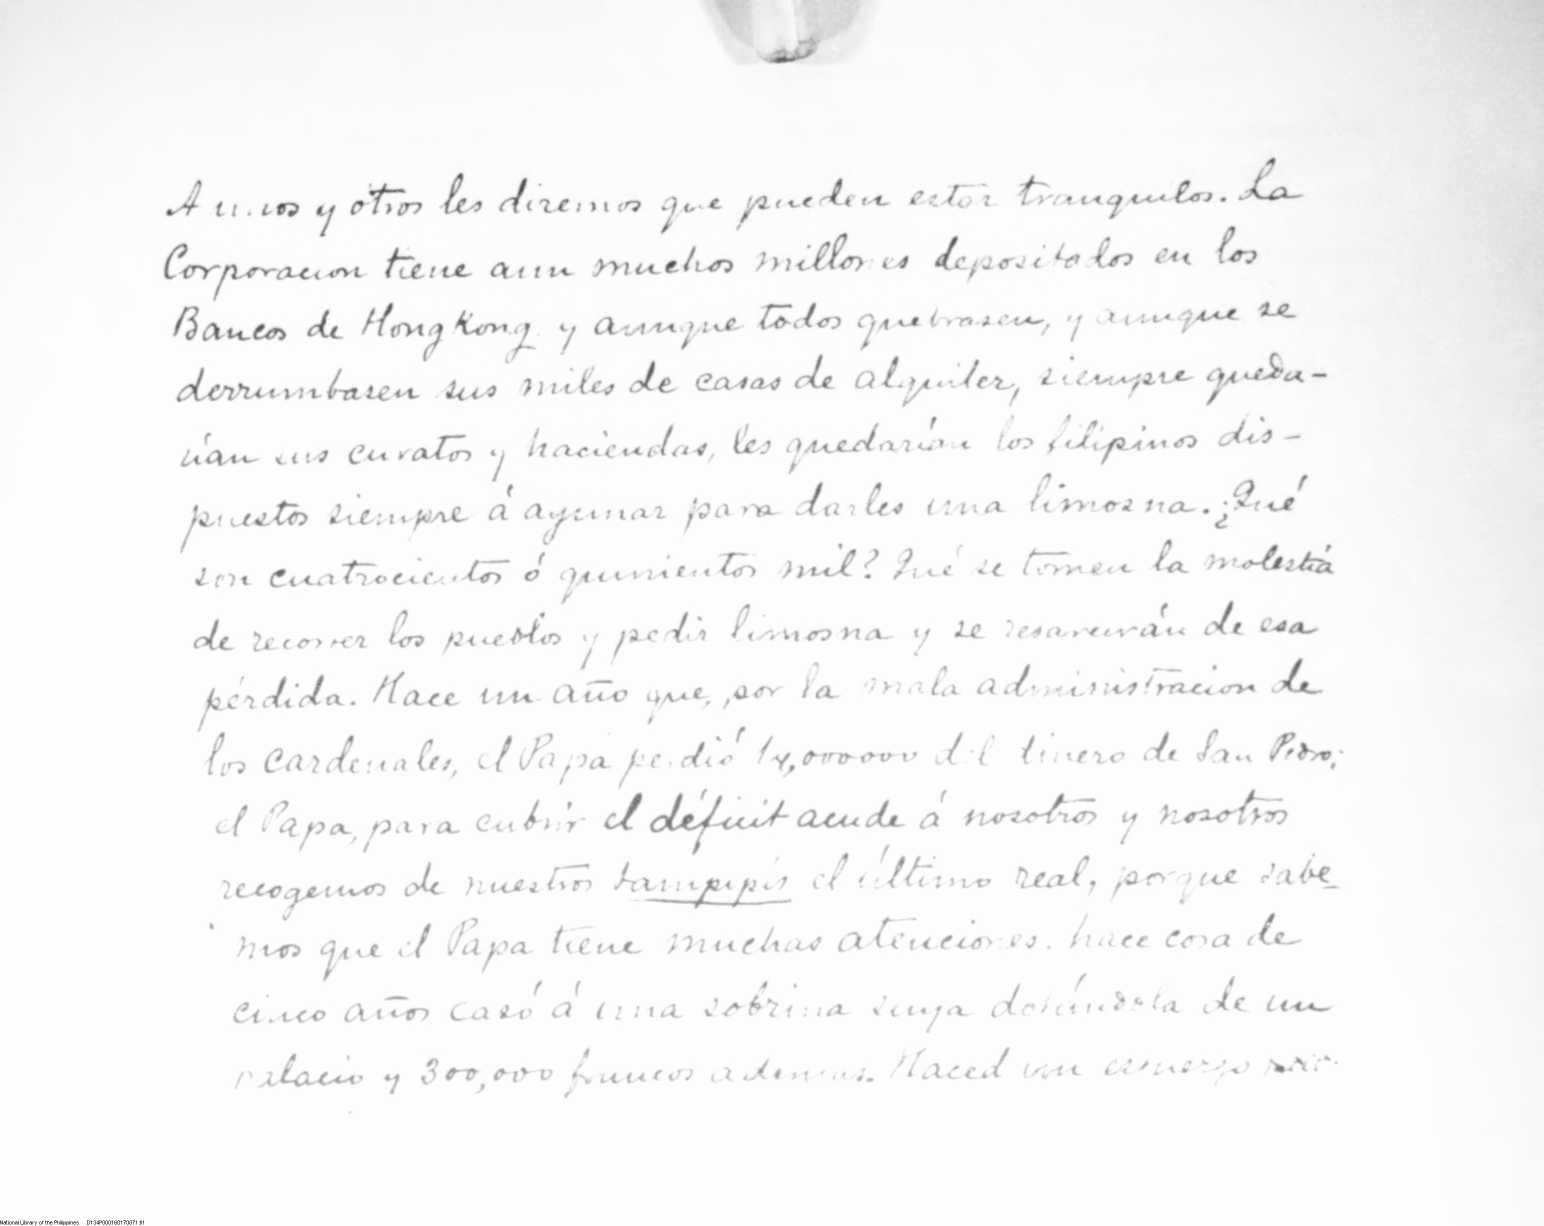 A unos y otros les diremos que pueden estar tranquilos. La
Corporacion tiene aun muchos millones depositados en los
Bancos de HongKong y aunque todos quebrasen, y aunque se
derrumbasen sus miles de casas de alquiler, siempre queda-
rían sus curatos y haciendas, les quedarían los filipinos dis-
puestos siempre á ayunar para darles una limosna. ¿Qué
son cuatrocientos ó quinientos mil? Qué se tomen la molestia
de recorrer los pueblos y pedir limosna y se resarcirán de esa
pérdida. Hace un año que, por la mala administracion de
los cardenales, el Papa perdió 14,000000 del dinero de San Pedro;
el Papa, para cubrir el déficit acude á nosotros y nosotros
recogemos de nuestros tampipis el último real, porque sabe-
mos que el Papa tiene muchas atenciones. hace cosa de
cinco años casó á una sobrina suya dotándola de un
palacio y 300,000 francos ademas. Haced un esfuerzo
National Library of the Philippines